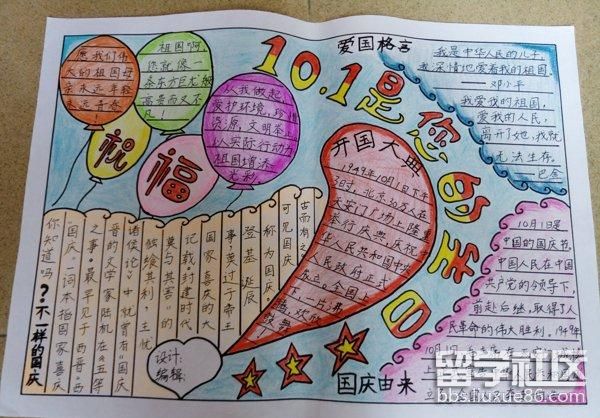 10.1是您的生日
愿我们伟
大的祖国母
亲永远年轻
永远青春
!
祖国啊
你就像一
条东方巨龙
高奇而久不
凡!
从我做起
爱护环境,珍惜
资源,文明举止
以实际行动为
祖国增添
光彩
祝
福
爱国格言
我是中华人民的儿子,
我深情地爱着我的祖国
邓小平
我爱我的祖国,
爱我的人民,
离开了她,我就
无法生存。
——巴金
开国大典
1949年10月1日下午
3时,北京30万人在
天安门广场上隆重
举行庆典,庆祝
华人民共和国中央
人民政府成立
全国上
下一片沸
腾,欢欣
鼓舞
10月1日是
中国的国庆节,
中国人民在中国
共产党的领导下,
前赴后继,取得了人
民革命的伟大胜利。1949年
10月1日
国庆由来
?·不一样的国庆
你知道吗
“国庆”一词本指国家喜庆
之事·最早见于西晋·西
晋的文学家陆机在《五等
诸侯论》中就曾有“国庆
独飨其利,主忧
莫与其害”的
记载·封建时代
国家喜庆的大
事,莫过于帝王
登基诞辰
称为国庆·
可见国庆
古而有之
设计:
编辑:
留学社区
bbs.liuxue86.com